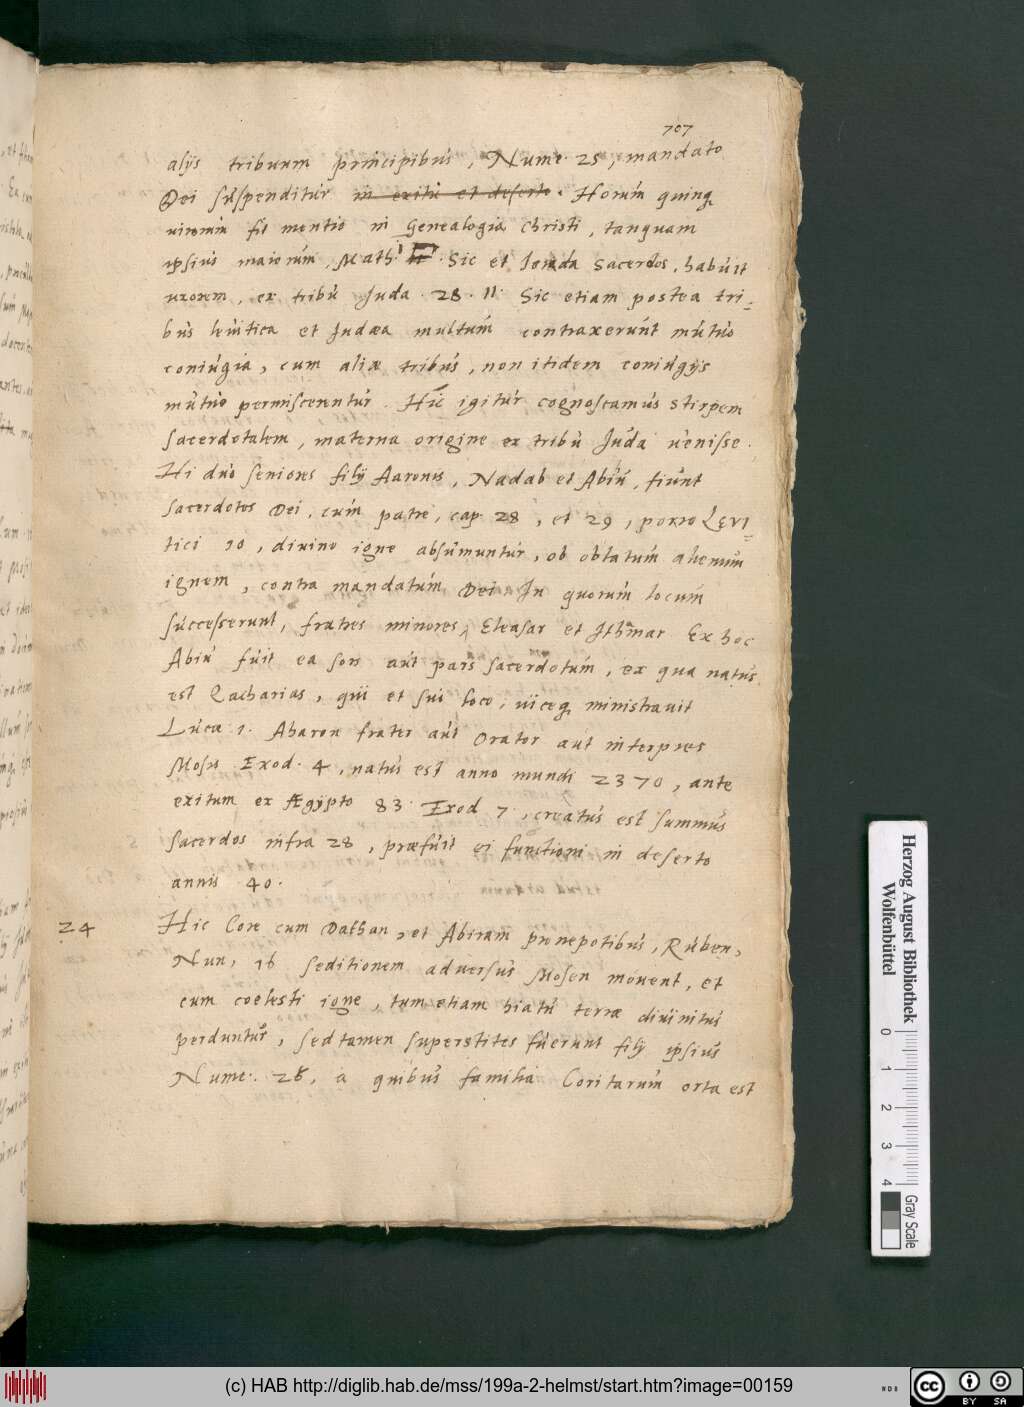 707
alijs tribuum principibus, Nume. 25, mandato
Dei suspenditur in exitu et deserto. Horum quinq
virorum fit mentio in Genealogia Christi, tanquam
ipsius maiorum, Math. 1. Sic et Joiada Sacerdos, habuit
uxorem, ex tribu Juda. 28. 11. Sic etiam postea tri=
bus levitica et Judæa multum contraxerunt mutuo
coniugia, cum aliæ tribus, non itidem coniugijs
mutuo permiscerentur. Hic igitur cognoscamus stirpem
sacerdotalem, materna origine ex tribu Juda venisse.
Hi duo seniores filij Aaronis, Nadab et Abiu, fiunt
sacerdotes Dei, cum patre, cap 28, et 29, porro LEVI=
tici 10, divino igne absumuntur, ob oblatum alienum
ignem, contra mandatum Dei. In quorum locum
successerunt, fratres minores, Eleasar et Ithmar Ex hoc
Abiu fuit ea sors aut pars sacerdotum, ex qua natus
est Zacharias, qui et suo loco, viceq ministravit
Luca 1. Aharon frater aut Orator aut interpres
Mosis Exod. 4, natus est anno mundi 2370, ante
exitum ex Ægypto 83. Exod 7, creatus est summus
sacerdos infra 28, præfuit ei functioni in deserto
annis 40.
24 Hic Core cum Dathan, et Abiram pronepotibus, Ruben,
Nun, 16 seditionem adversus Mosen movent, et
cum coelesti igne, tum etiam hiatu terræ divinitus
perduntur, sed tamen superstites fuerunt filij ipsius
Nume. 26, a quibus familia Coritarum orta est
Herzog August Bibliothek
Wolfenbüttel
0 1 2 3 4
Gray Scale
(c) HAB http://diglib.hab.de/mss/199a-2-helmst/start.htm?image=00159
cc BY SA